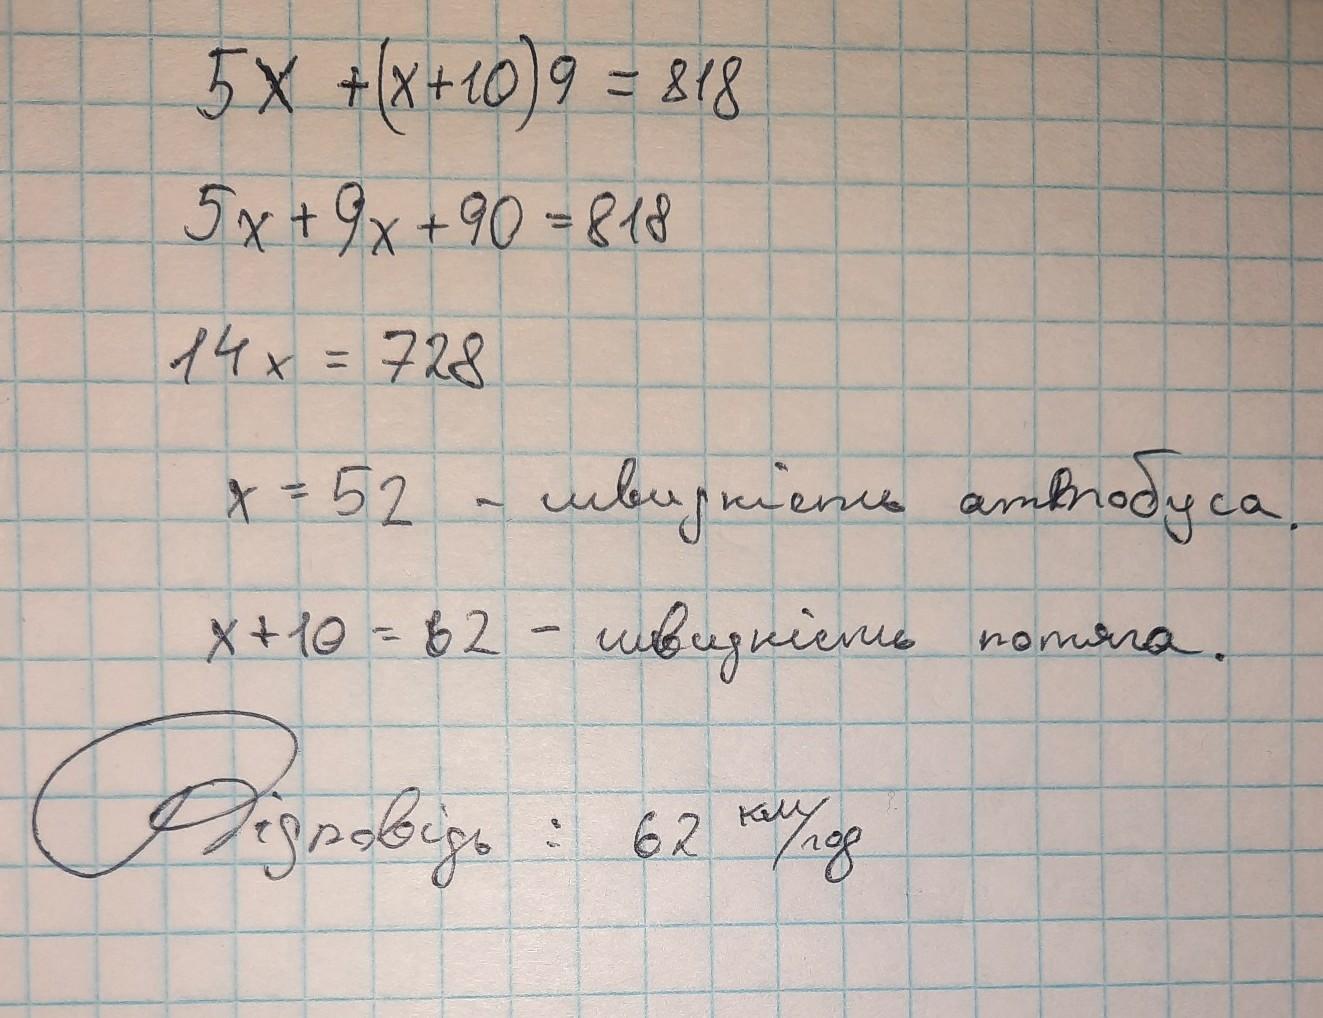 5x + (x+10)9 = 818
5x + 9x + 90 = 818
14x = 728
x = 52 - швидкість автобуса.
x+10 = 62 - швидкість потяга.
Відповідь : 62 км/год